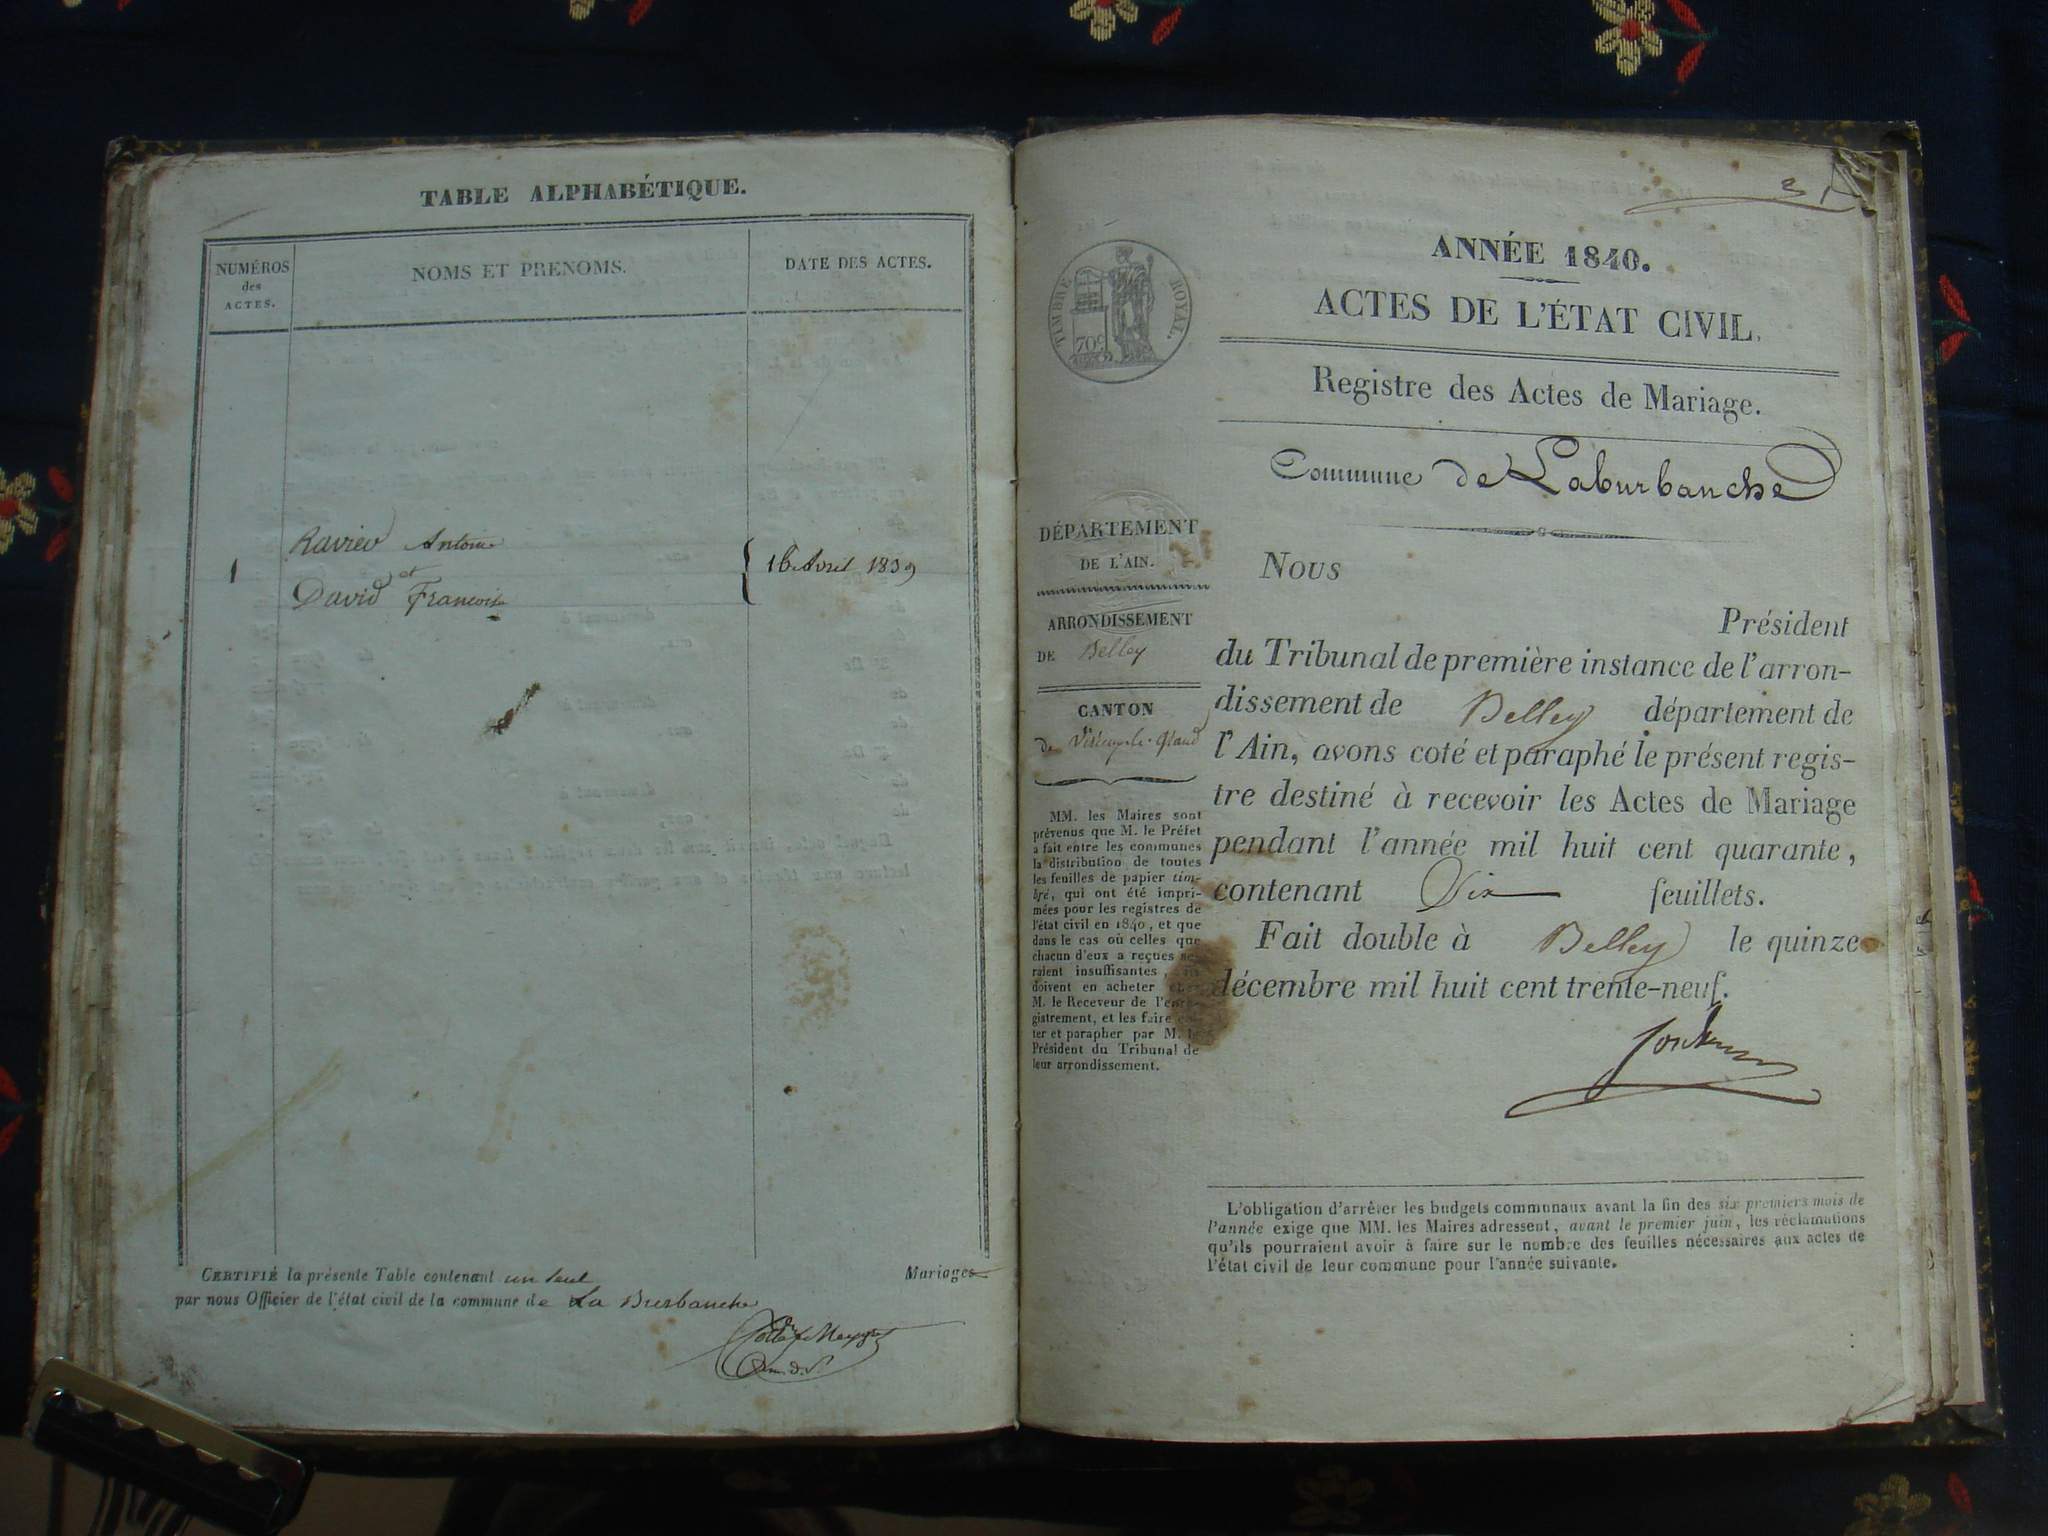 TABLE ALPHABÉTIQUE.
NUMÉROS
des
ACTES.
NOMS ET PRENOMS.
DATE DES ACTES.
1
Ravier Antoine
et
David Francoise
16 Avril 1839
CERTIFIÉ la présente Table contenant un seul Mariages
par nous Officier de l'état civil de la commune de La Burbanche
ANNÉE 1840.
ACTES DE L'ÉTAT CIVIL.
TIMBRE ROYAL.
70c
Registre des Actes de Mariage.
Commune de Laburbanche
DÉPARTEMENT
DE L'AIN.
ARRONDISSEMENT
DE Belley
CANTON
de Virieu-le-Grand
MM. les Maires sont
prévenus que M. le Préfet
a fait entre les communes
la distribution de toutes
les feuilles de papier tim-
bré, qui ont été impri-
mées pour les registres de
l'état civil en 1840, et que
dans le cas où celles que
chacun d'eux a reçues se-
raient insuffisantes, ils
doivent en acheter chez
M. le Receveur de l'enre-
gistrement, et les faire co-
ter et parapher par M. le
Président du Tribunal de
leur arrondissement.
Nous
Président
du Tribunal de première instance de l'arron-
dissement de Belley département de
l'Ain, avons coté et paraphé le présent regis-
tre destiné à recevoir les Actes de Mariage
pendant l'année mil huit cent quarante,
contenant Six feuillets.
Fait double à Belley le quinze
décembre mil huit cent trente-neuf.
L'obligation d'arrêter les budgets communaux avant la fin des six premiers mois de
l'année exige que MM. les Maires adressent, avant le premier juin, les réclamations
qu'ils pourraient avoir à faire sur le nombre des feuilles nécessaires aux actes de
l'état civil de leur commune pour l'année suivante.